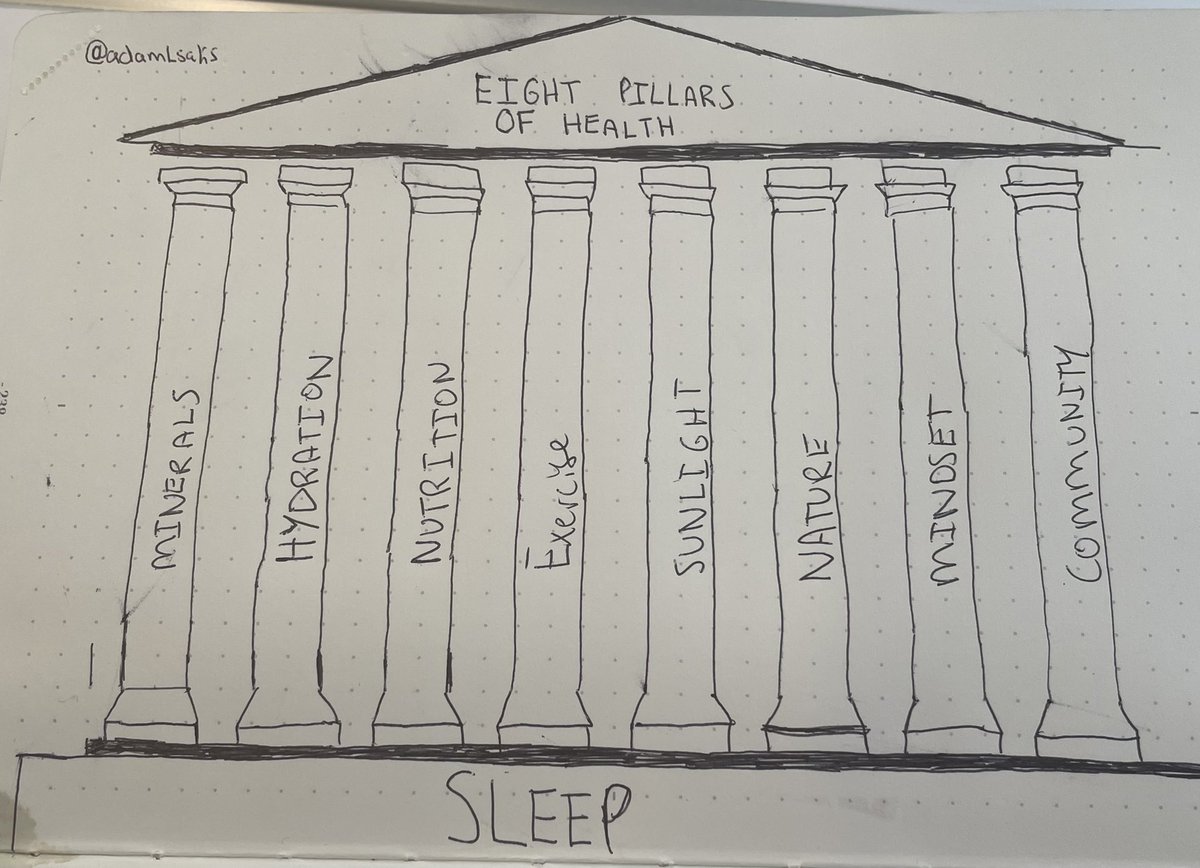 @adamLsaks
EIGHT PILLARS
OF HEALTH
MINERALS
HYDRATION
NUTRITION
Exercise
SUNLIGHT
NATURE
MINDSET
COMMUNITY
SLEEP